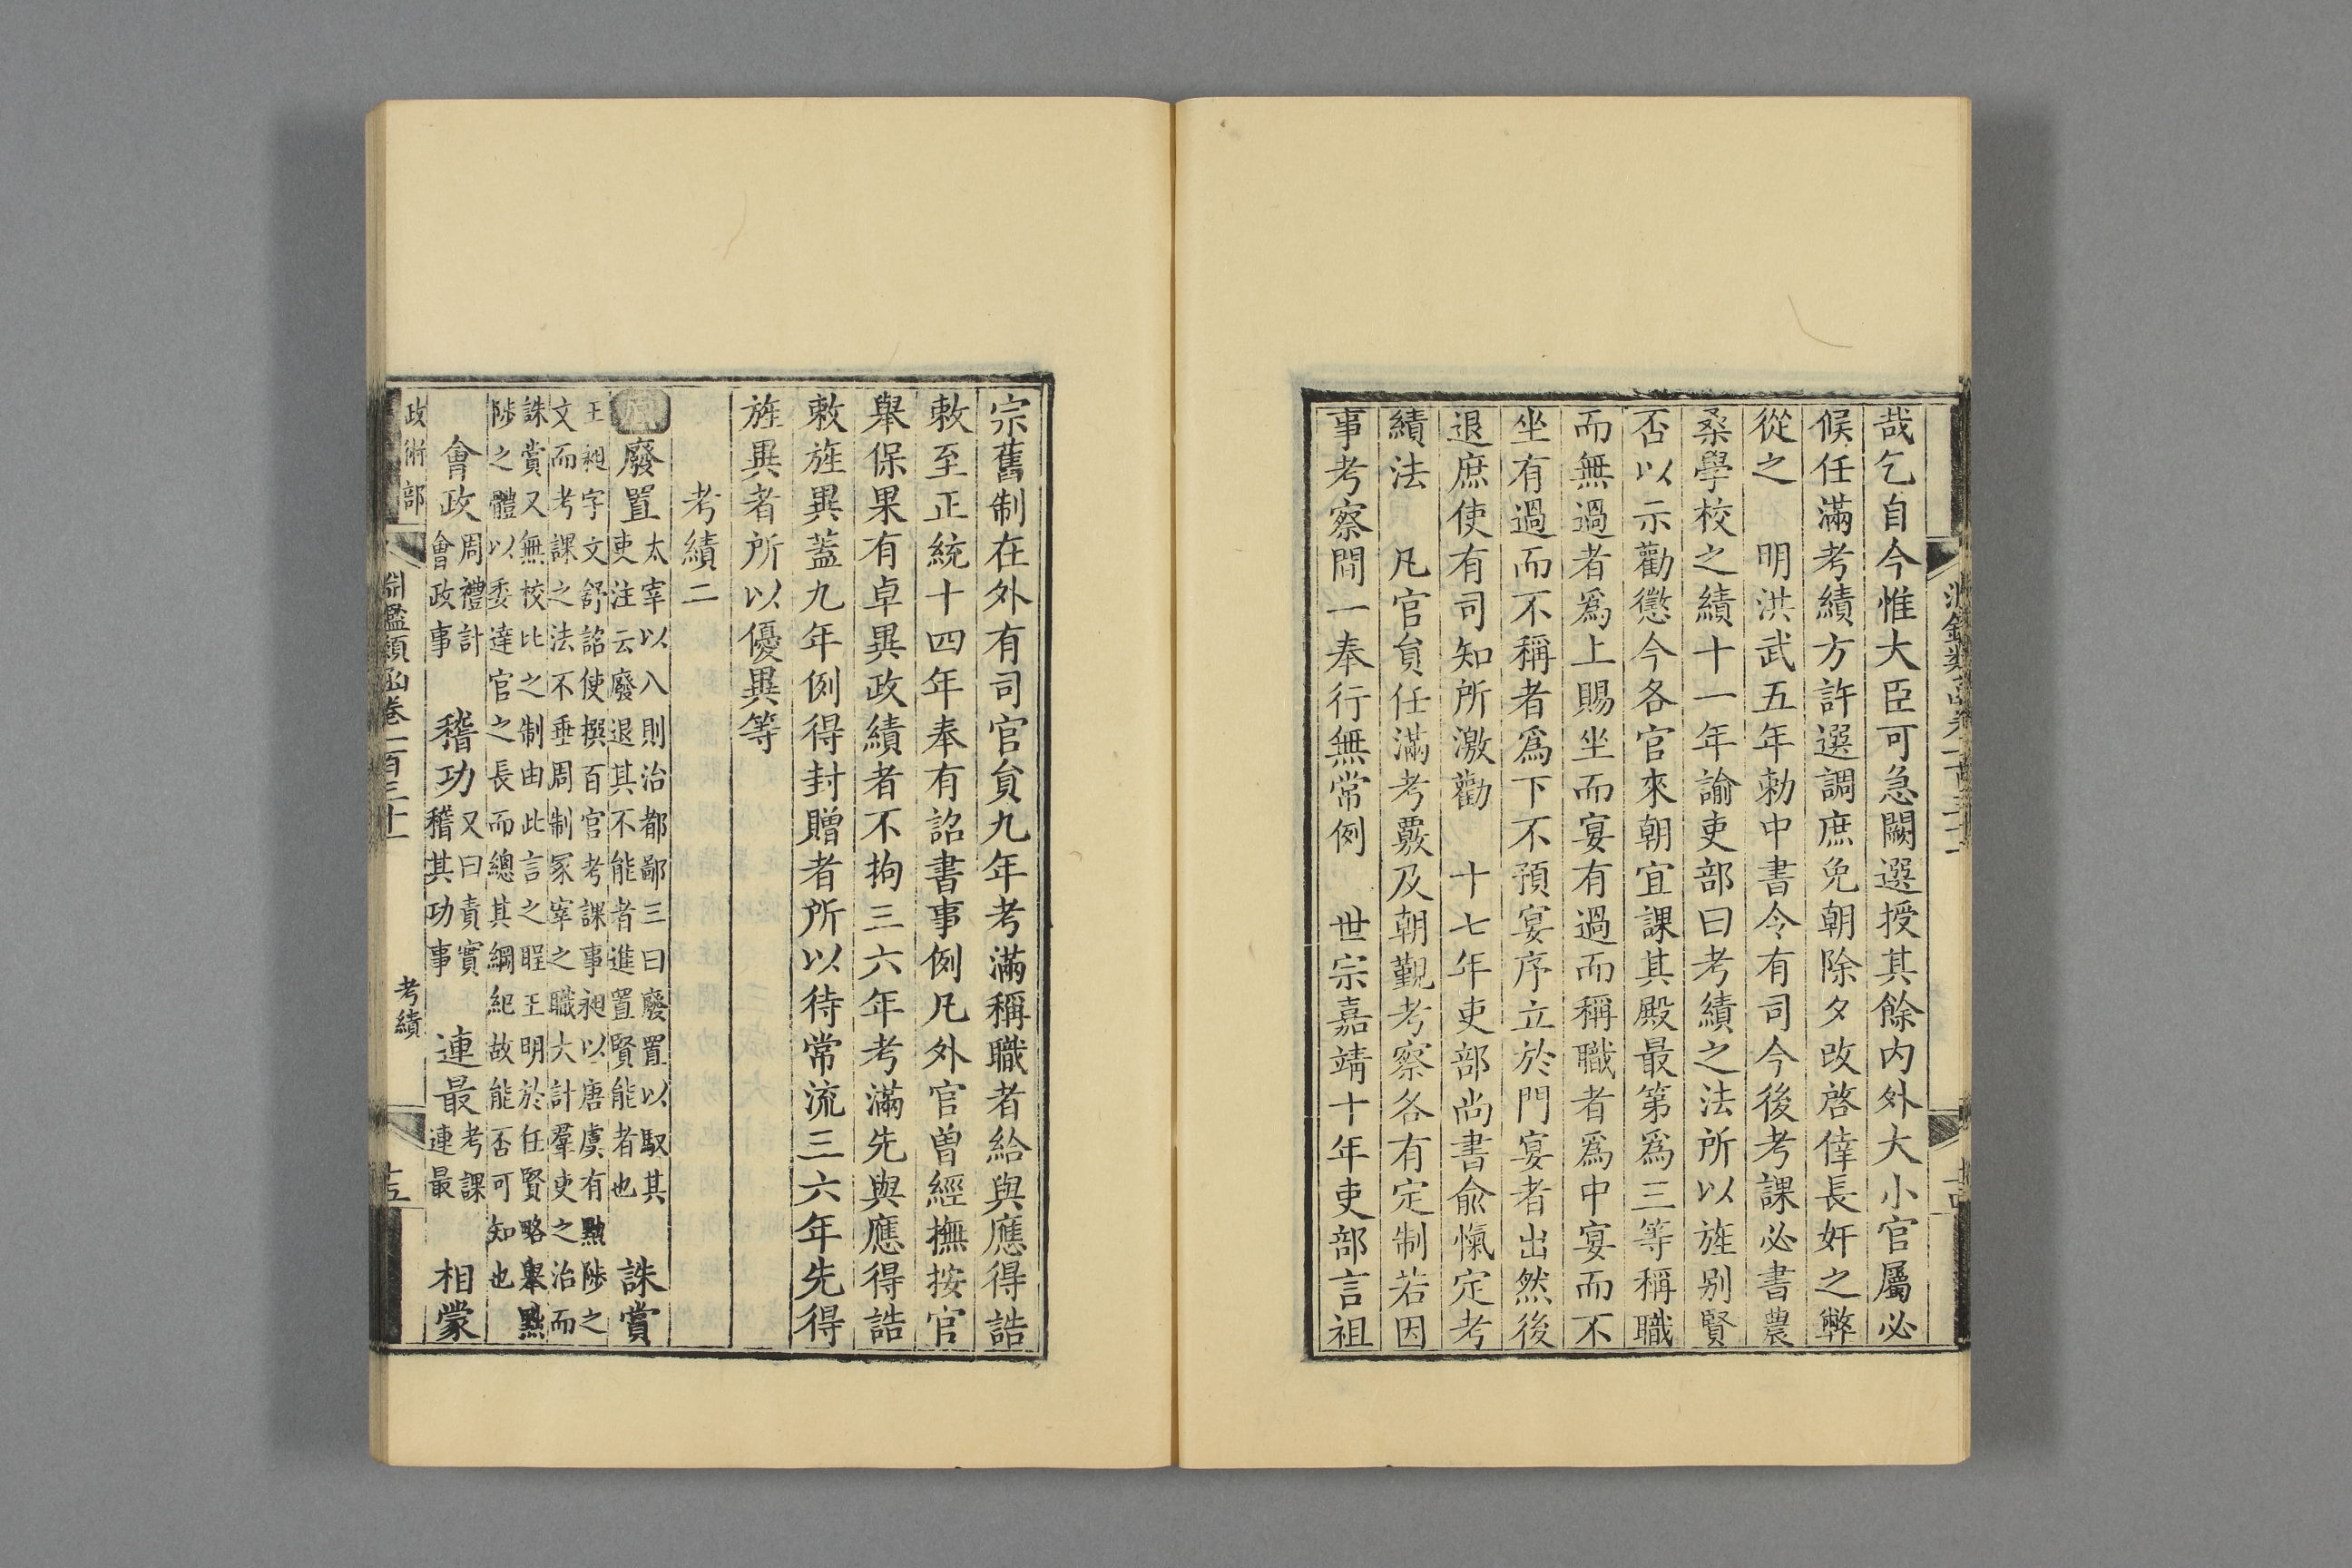 哉乞自今惟大臣可急闕選授其餘内外大小官屬必
候任滿考績方許選調庶免朝除夕改啓倖長奸之弊
從之　明洪武五年勅中書令有司今後考課必書農
桑學校之績十一年諭吏部曰考績之法所以旌别賢
否以示勸懲今各官來朝宜課其殿最第爲三等稱職
而無過者爲上賜坐而宴有過而稱職者爲中宴而不
坐有過而不稱者爲下不預宴序立於門宴者出然後
退庶使有司知所激勸　十七年吏部尚書兪愾定考
績法　凡官貟任滿考覈及朝覲考察各有定制若因
事考察間一奉行無常例　世宗嘉靖十年吏部言祖
宗舊制在外有司官貟九年考滿稱職者給與應得誥
敕至正統十四年奉有詔書事例凡外官曾經撫按官
舉保果有卓異政績者不拘三六年考滿先與應得誥
敕旌異葢九年例得封贈者所以待常流三六年先得
旌異者所以優異等
考績二
廢置
太宰以八則治都鄙三曰廢置以馭其
吏注云廢退其不能者進置賢能者也
誅賞
王昶字文舒詔使撰百官考課事昶以唐虞有黜陟之
文而考課之法不垂周制冢宰之職大計羣吏之治而
誅賞又無校比之制由此言之聖王明於任賢略舉黜
陟之體以委達官之長而總其綱紀故能否可知也
會政
周禮計
會政事
稽功
又曰責實
稽其功事
連最
考課
連最
相蒙
政術部
淵鑑類函卷一百三十一
考績
十五